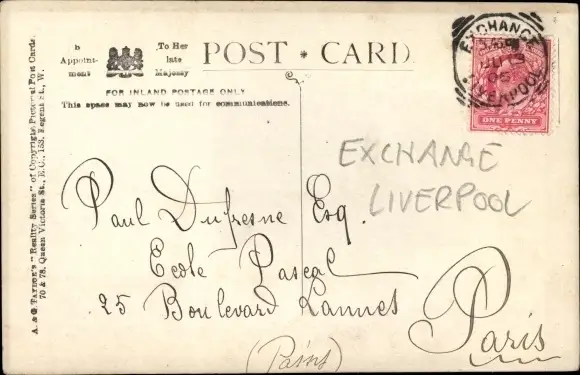 By Appointment
To Her late Majesty
POST CARD.
FOR INLAND POSTAGE ONLY
This space may now be used for communications.
A. & G. TAYLOR'S "Reality Series" of Copyright Pictorial Post Cards.
70 & 78, Queen Victoria St., E.C., 153, Regent St., W.
EXCHANGE
LIVERPOOL
05
ONE PENNY
EXCHANGE
LIVERPOOL
Paul Dufresne Esq.
Ecole Pascal
25 Boulevard Lannes
Paris
(Paris)